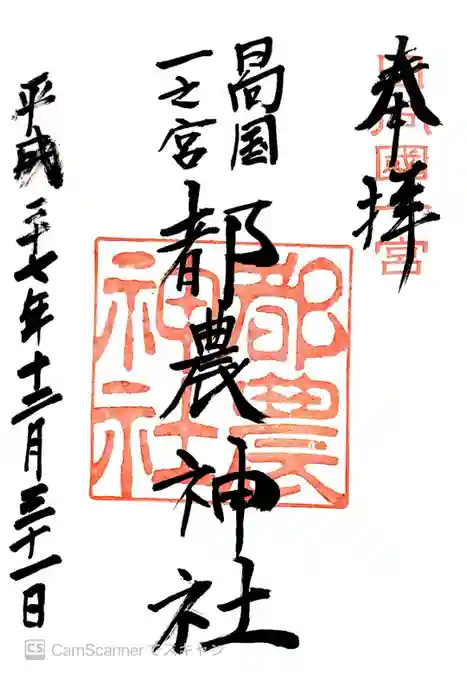 奉拝
日向国一宮
日向国
一之宮
都農神社
都農
神社
平成二十七年十二月三十一日
CS CamScannerでスキャン